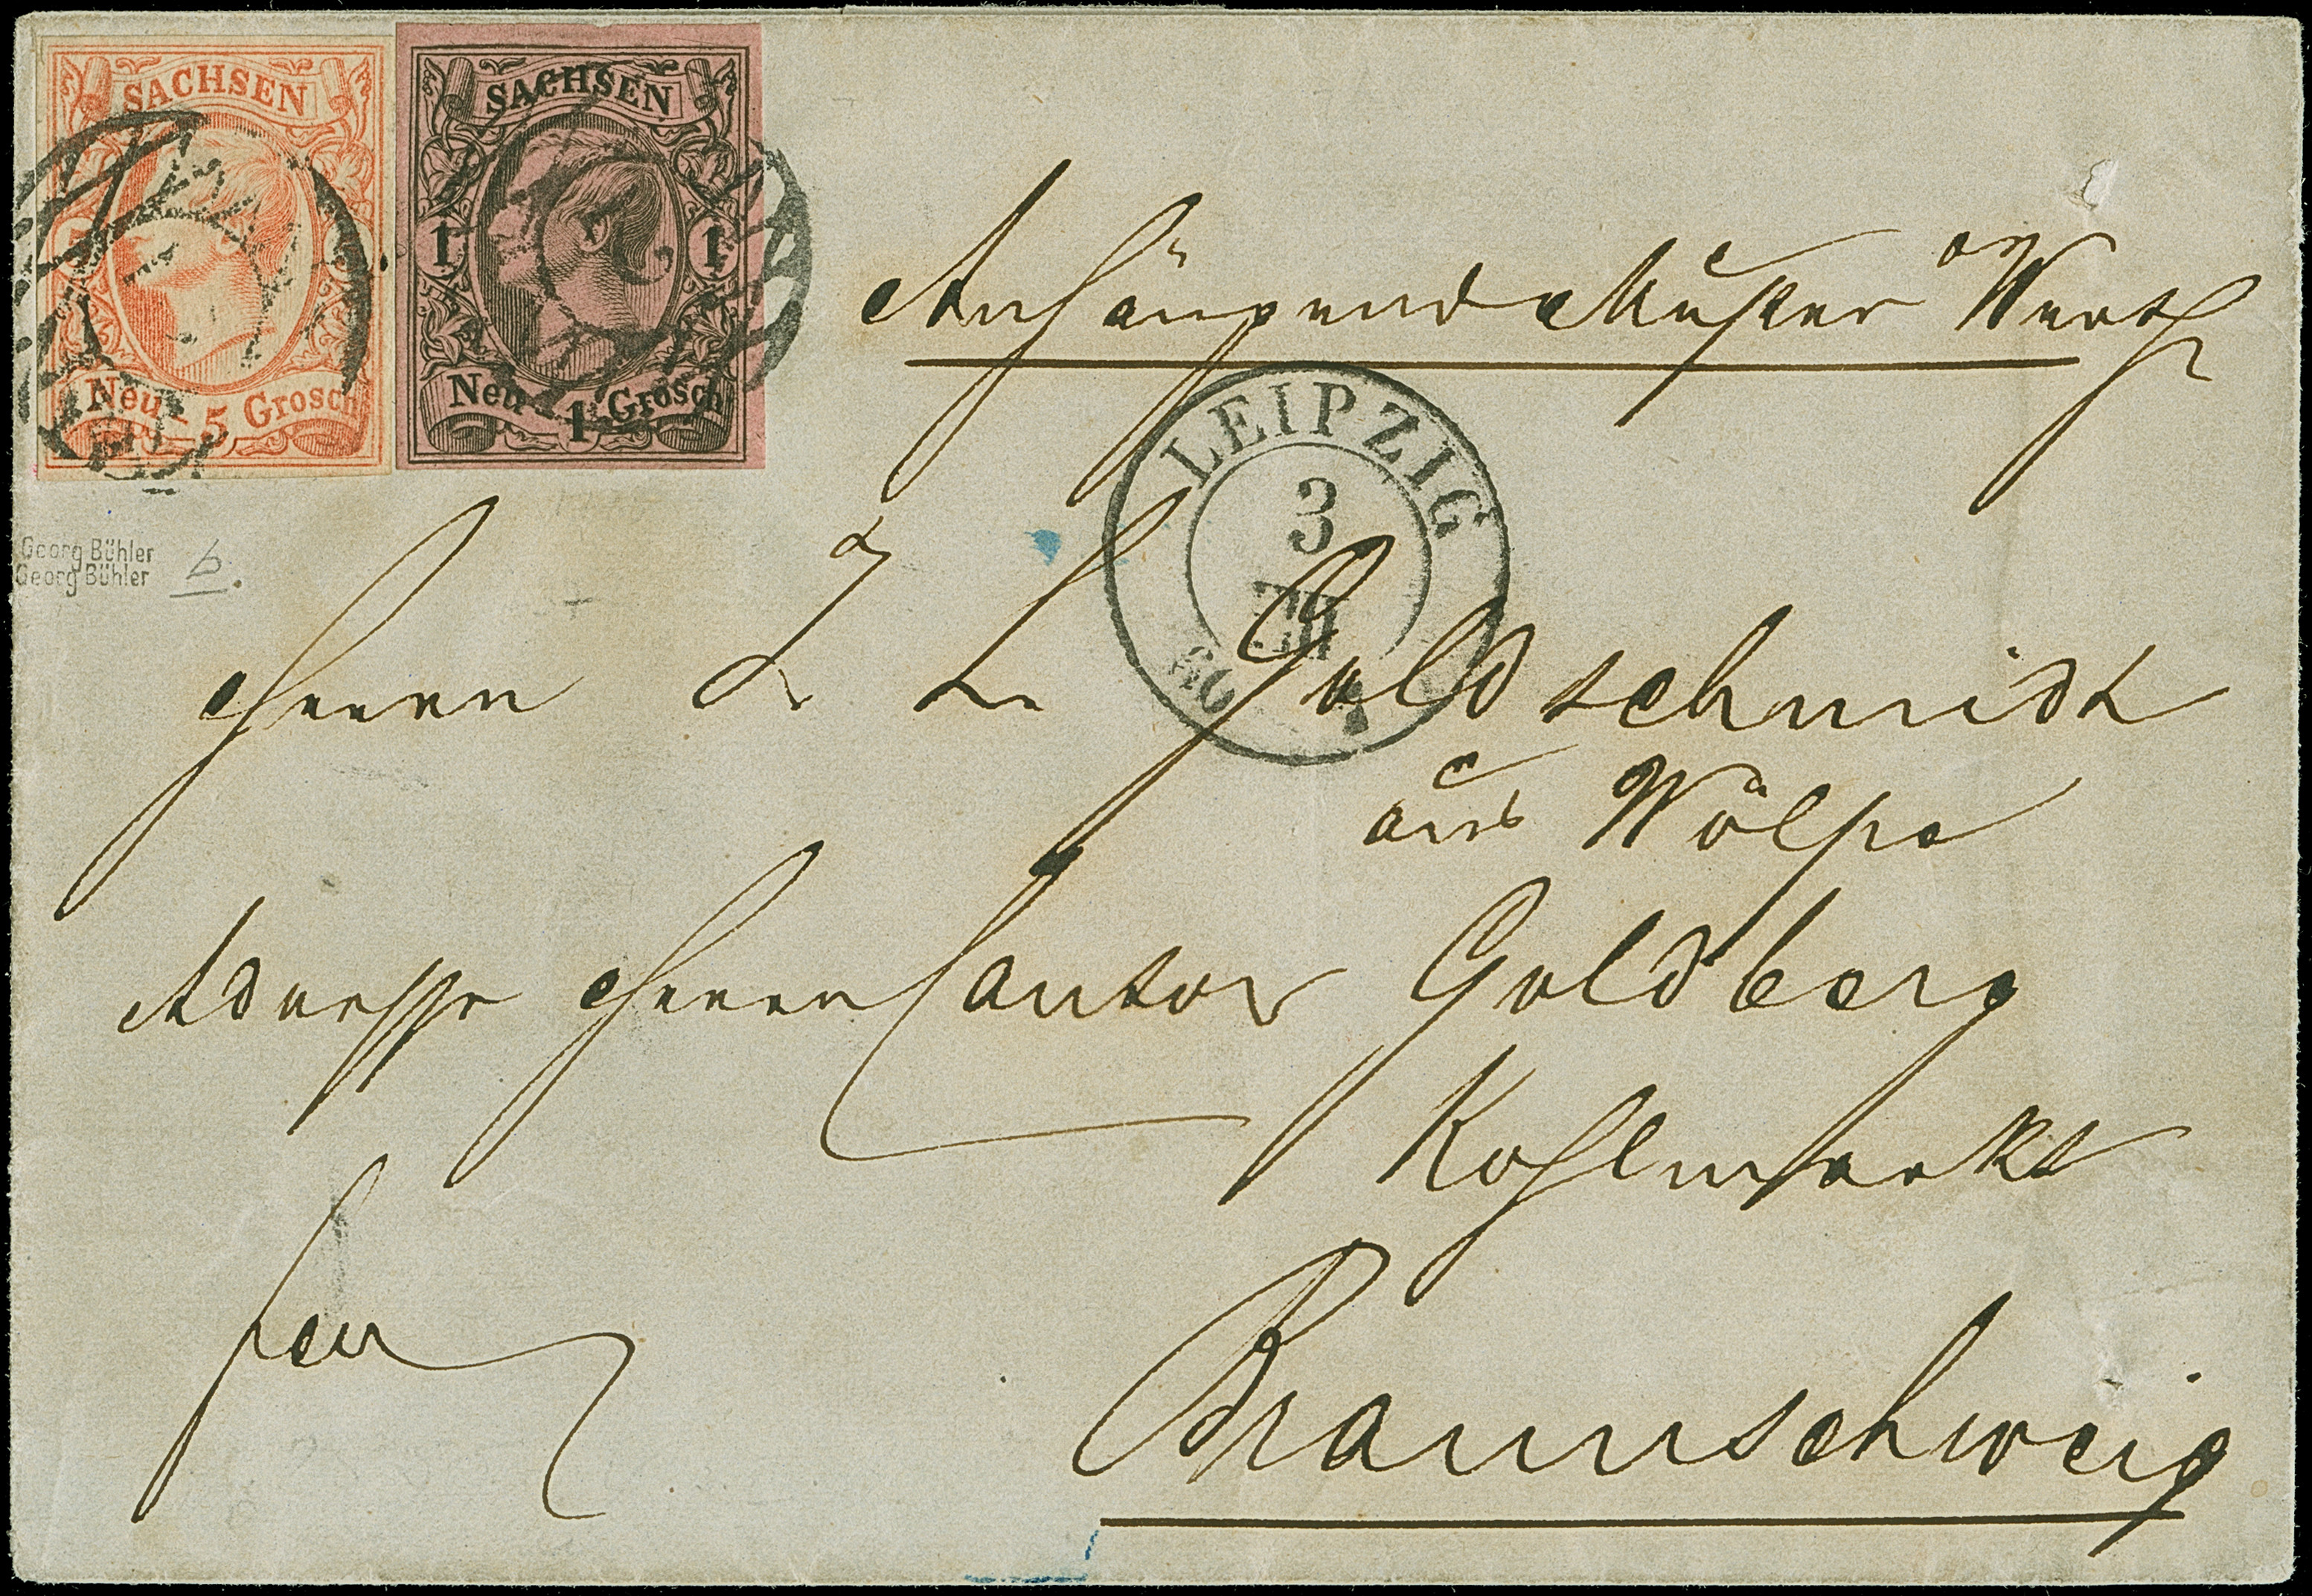 SACHSEN
5
Neu - 5 Grosch
SACHSEN
1 1
Neu - 1 Grosch
Anhängend Muster
LEIPZIG
3
III
60
Georg Bühler
Georg Bühler
Herrn Goldschmidt
aus Wölpe
Adresse Herrn Cantor Goldberg
Kohlmarkt
Braunschweig